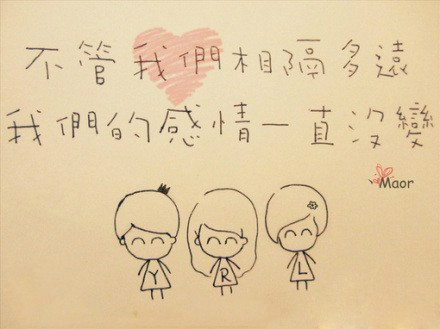 不管我們相隔多遠
我們的感情一直沒變
Maor
Y R L